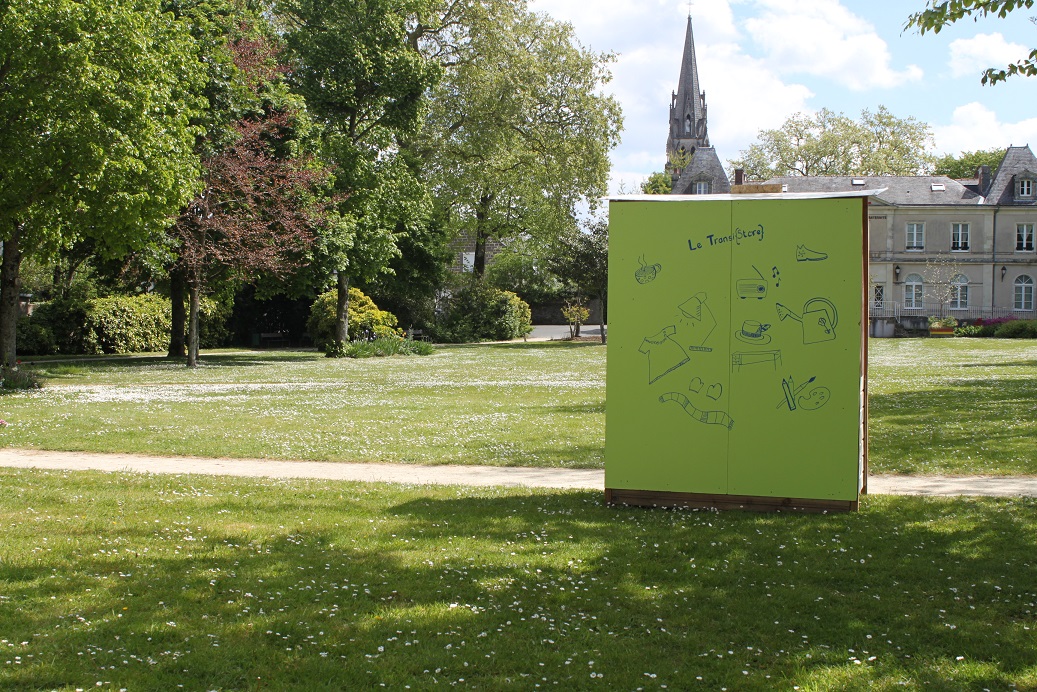 Le Transi{Store}